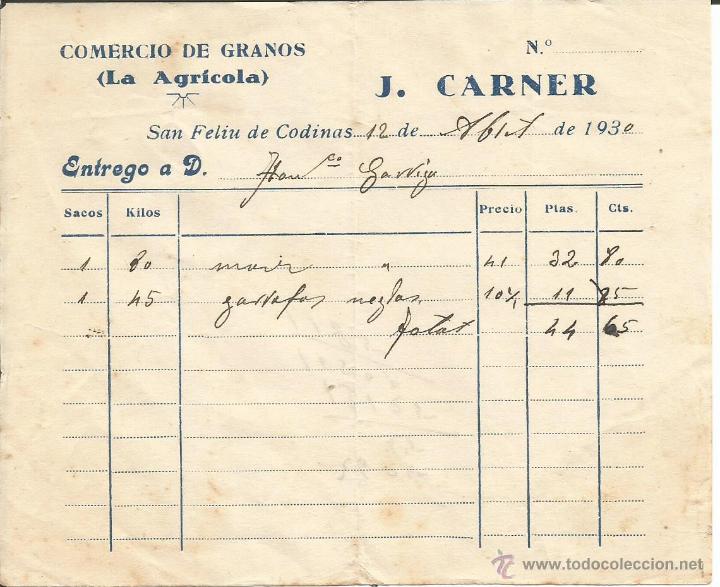 COMERCIO DE GRANOS
(La Agrícola)
N.º
J. CARNER
San Feliu de Codinas 12 de Abril de 1930
Entrego a D. Franco Garriga
Sacos Kilos Precio Ptas. Cts.
1 80 maiz " 41 32 80
1 45 garrofas negras 11 85
Total 44 65
www.todocoleccion.net